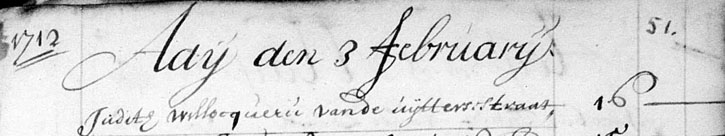 1712 Ady den 3 february. 51.
Judith willocqueru vande uyttersstraat, 16